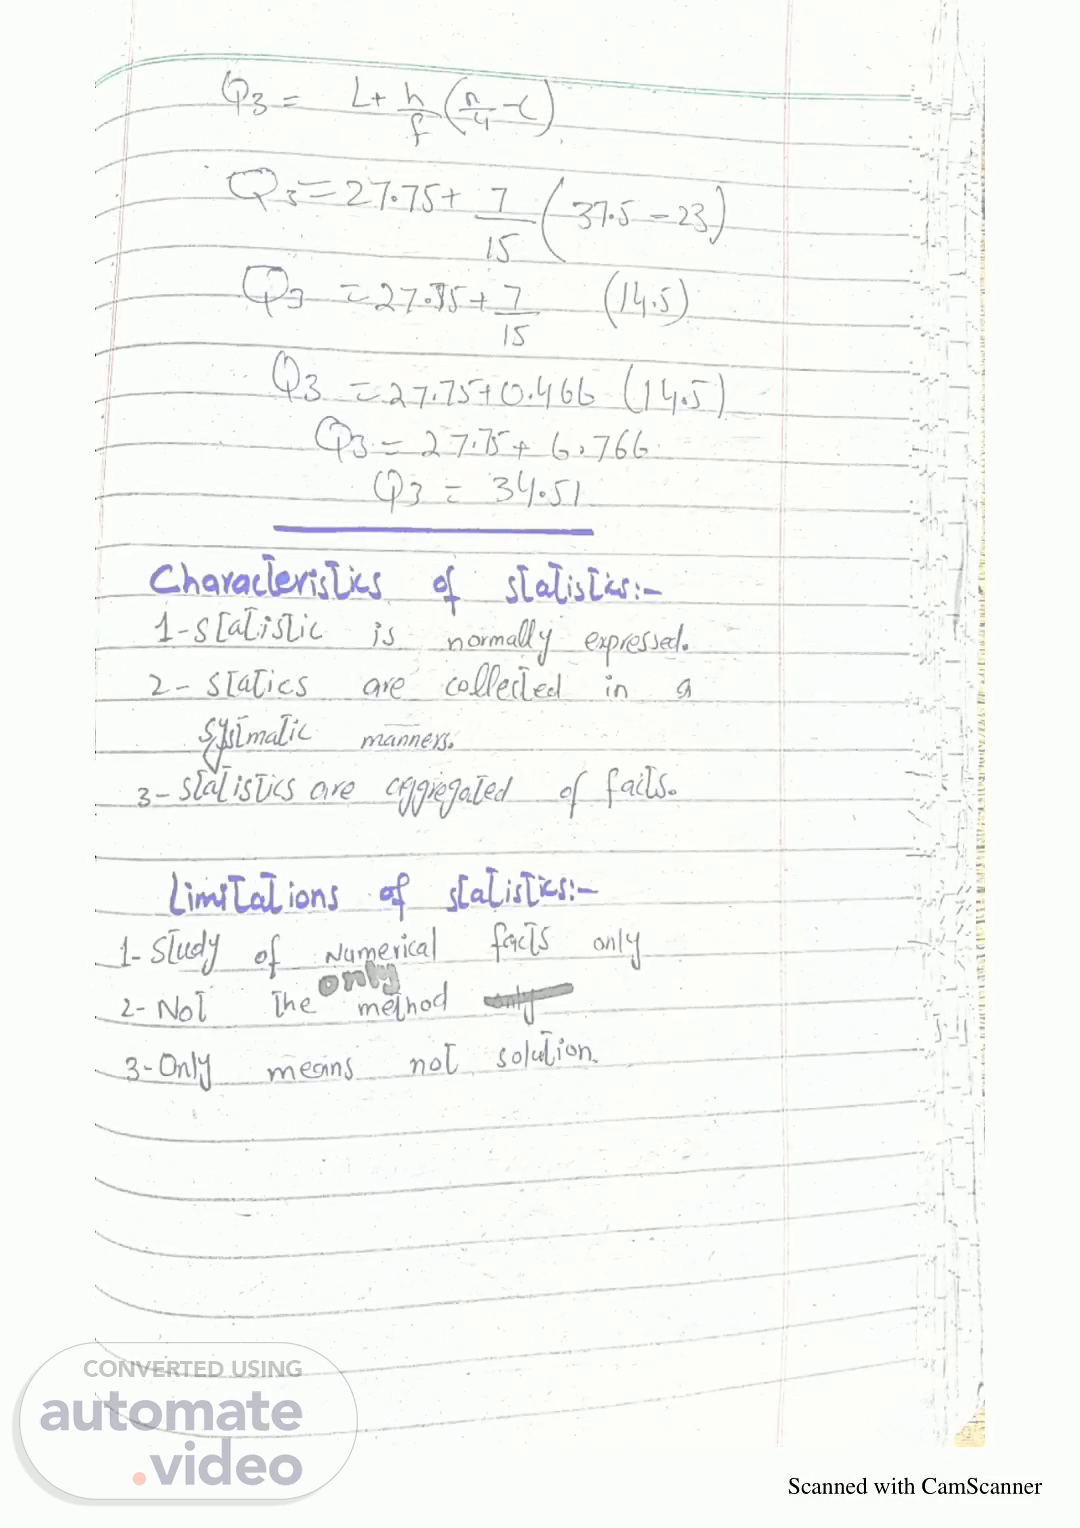 Q3 = L+ h/f (n/4 - c)
Q3 = 27.75 + 7/15 (37.5 - 23)
Q3 = 27.75 + 7/15 (14.5)
Q3 = 27.75 + 0.466 (14.5)
Q3 = 27.75 + 6.766
Q3 = 34.51
Characteristics of statistics:-
1- statistic is normally expressed.
2- statics are collected in a
systmatic manners.
3- statistics are aggregated of facts.
Limitations of statistics:-
1- Study of Numerical facts only
only
2- Not the method only
3- Only means not solution.
CONVERTED USING
automate
.video
Scanned with CamScanner